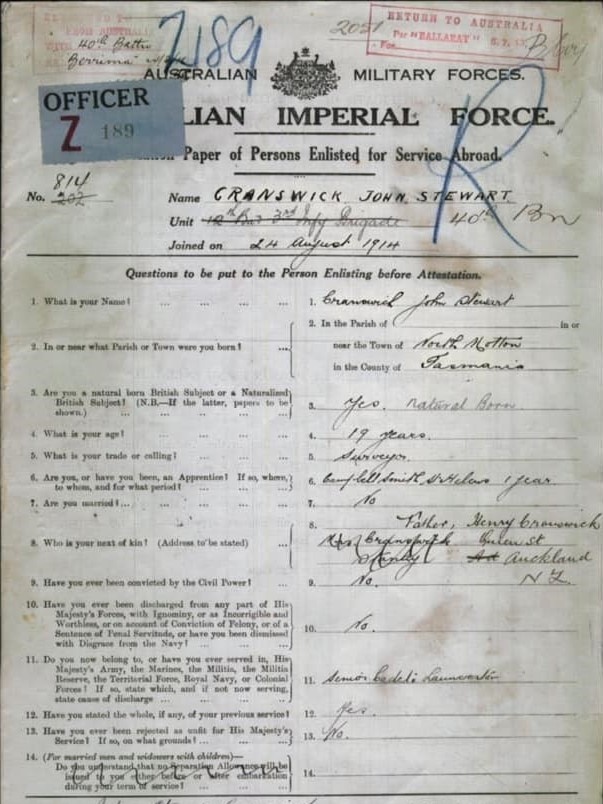 RETURN TO
FROM AUSTRALIA
2051
RETURN TO AUSTRALIA
Per "BALLARAT"
For
40th Battn
Berrima
7189
AUSTRALIAN MILITARY FORCES.
OFFICER
Z 189
LIAN IMPERIAL FORCE.
R
Paper of Persons Enlisted for Service Abroad.
814
No. 202
Name CRANSWICK JOHN STEWART
Unit 12th Bn 3rd Infy Brigade 40th Bn
Joined on 24 August 1914
Questions to be put to the Person Enlisting before Attestation.
1. What is your Name? ... ... ... ... 1. Cranswick John Stewart
2. In or near what Parish or Town were you born? ... ... 2. In the Parish of in or
near the Town of North Motton
in the County of Tasmania
3. Are you a natural born British Subject or a Naturalized
British Subject? (N.B.—If the latter, papers to be
shown.) ... ... ... ... ... 3. Yes. Natural Born
4. What is your age? ... ... ... ... 4. 19 years.
5. What is your trade or calling? ... ... ... 5. Surveyor
6. Are you, or have you been, an Apprentice? If so, where,
to whom, and for what period? ... ... ... 6. Campbell Smith St Helens 1 year
7. Are you married?... ... ... ... ... 7. No
8. Who is your next of kin? (Address to be stated) ... 8. Father, Henry Cranswick
Cranswick Queen St
Stanley Auckland
N Z.
9. Have you ever been convicted by the Civil Power? ... 9. No.
10. Have you ever been discharged from any part of His
Majesty's Forces, with Ignominy, or as Incorrigible and
Worthless, or on account of Conviction of Felony, or of a
Sentence of Penal Servitude, or have you been dismissed
with Disgrace from the Navy? ... ... ... 10. No.
11. Do you now belong to, or have you ever served in, His
Majesty's Army, the Marines, the Militia, the Militia
Reserve, the Territorial Force, Royal Navy, or Colonial
Forces? If so, state which, and if not now serving,
state cause of discharge ... ... ... ... 11. Senior Cadets Launceston
12. Have you stated the whole, if any, of your previous service? 12. Yes.
13. Have you ever been rejected as unfit for His Majesty's
Service? If so, on what grounds? ... ... ... 13. No.
14. (For married men and widowers with children)—
Do you understand that no Separation Allowance will be
issued to you either before or after embarkation
during your term of service? ... ... ... 14.